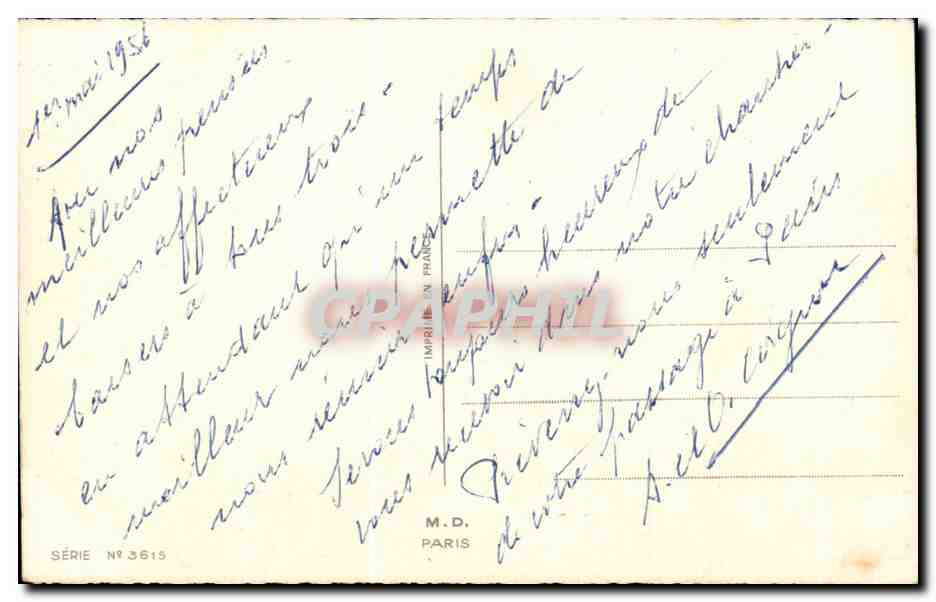 1er mai 1956
Avec nos
meilleures pensées
et nos affectueux
baisers à tous trois -
en attendant qu'un temps
meilleur nous permette de
nous réunir enfin -
Serons toujours heureux de
vous recevoir dans notre chaumière -
Prévenez-nous seulement
de votre passage à Paris
S. et O.
IMPRIMÉ EN FRANCE
CPARPHIL
M.D.
PARIS
SÉRIE No 3615